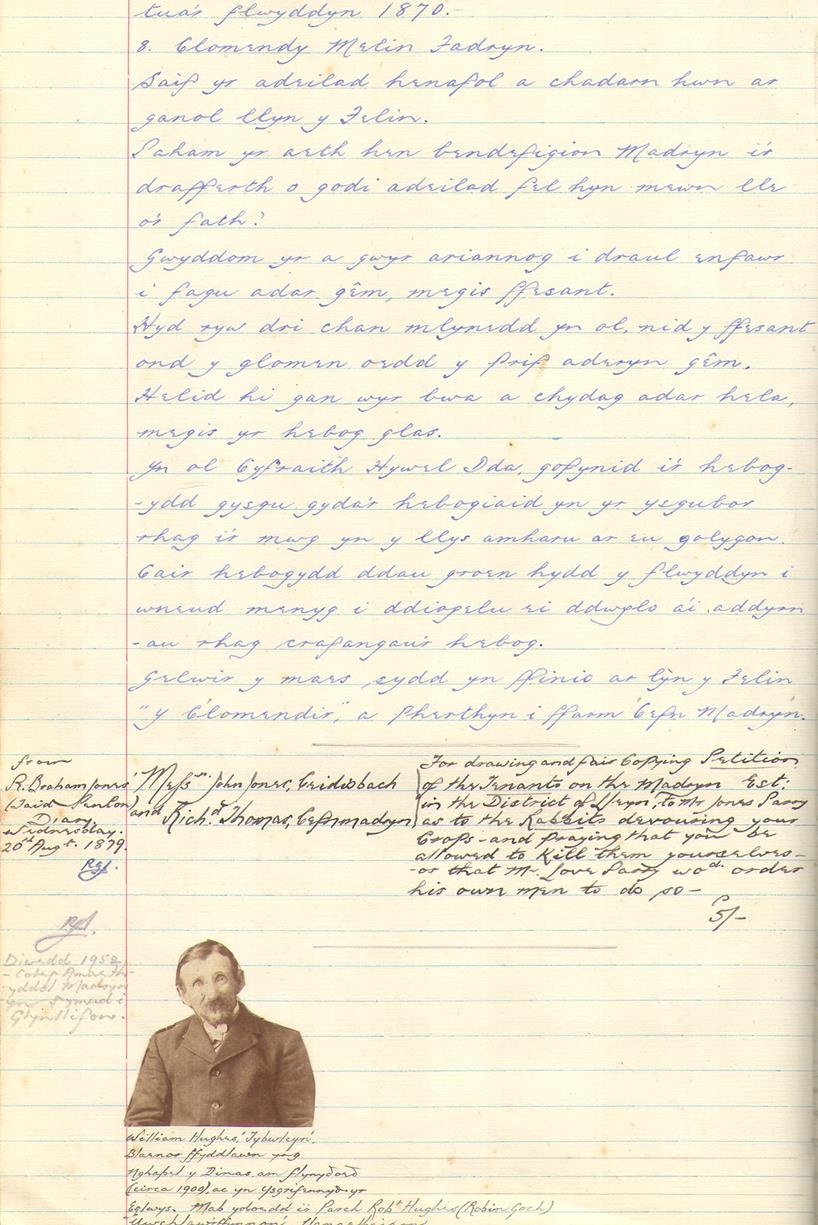 tua'r flwyddyn 1870.
8. Clomendy Melin Fadryn.
Saif yr adeilad henafol a chadarn hwn ar
ganol llyn y Felin.
Paham yr aeth hen bendefigion Madryn i'r
drafferth o godi adeilad fel hyn mewn lle
o'r fath?
Gwyddom yr a gwyr ariannog i draul enfawr
i fagu adar gêm, megis ffesant.
Hyd ryw dri chan mlynedd yn ol, nid y ffesant
ond y glomen oedd y prif aderyn gêm.
Helid hi gan wyr bwa a chydag adar hela,
megis yr hebog glas.
Yn ol Cyfraith Hywel Dda, gofynid i'r hebog-
-ydd gysgu gyda'r hebogiaid yn yr ysgubor
rhag i'r mwg yn y llys amharu ar eu golygon.
Cair hebogydd ddau groen hydd y flwyddyn i
wneud menyg i ddiogelu ei ddwylo a'i addyrn
-au rhag crafangau'r hebog.
Gelwir y maes sydd yn ffinio ar lyn y Felin
"y Clomendir", a pherthyn i ffarm Cefn Madryn.
from
R. Braham Jones'
(Taid Penlon)
Diary.
Wednesday.
20th Augt. 1879.
RgJ.
Messrs. John Jones, Ceidiobach
and Richd. Thomas, Cefnmadryn
For drawing and fair Copying Petition
of the Tenants on the Madryn Est:
in the District of Lleyn, to Mr Jones Parry
as to the Rabbits devouring your
Crops - and praying that you be
allowed to Kill them yourselves -
- or that Mr. Love Parry wod. order
his own men to do so -
5/-
RgJ.
Diwedd 1952
- Coleg Amaeth-
yddol Madryn
yn symud i
Glynllifon.
William Hughes, Tybwlcyn.
Blaenor ffyddlawn yng
Nghapel y Dinas am flynyddoedd
(circa 1900), ac yn Ysgrifennydd yr
Eglwys. Mab ydoedd i'r Parch Robt Hughes (Robin Goch)